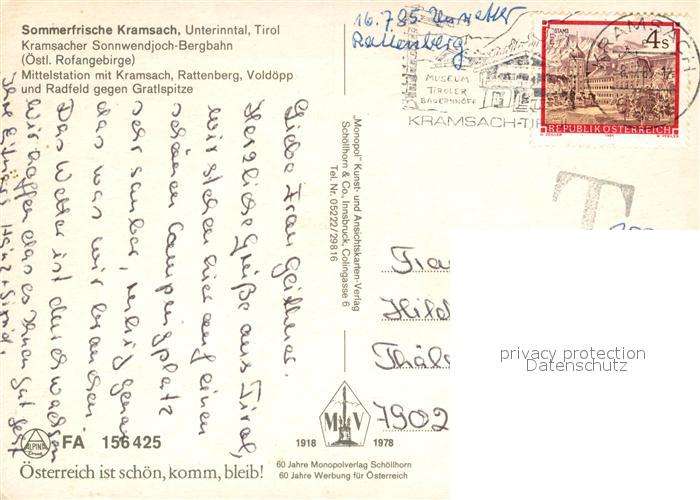 Sommerfrische Kramsach, Unterinntal, Tirol
Kramsacher Sonnwendjoch-Bergbahn
(Östl. Rofangebirge)
Mittelstation mit Kramsach, Rattenberg, Voldöpp
und Radfeld gegen Gratlspitze
16.7.85
Rattenberg
MUSEUM
TIROLER
BAUERNHÖFE
KRAMSACH-TIR
KRAMSACH
STIFT STAMS
4 S
REPUBLIK ÖSTERREICH
1984
T
Liebe Frau
Herzliche Grüße aus Tirol,
wir stehen hier auf einen
schönen Campingplatz
sehr sauber, ruhig genau
das was wir brauchen.
Das Wetter ist durchwachsen
Wir hoffen das es Ihnen gut geht
Ihre
„Monopol" Kunst- und Ansichtskarten-Verlag
Schöllhorn & Co., Innsbruck, Colingasse 6
Tel. Nr. 05222/29816
Frau
Hild
Thäl
7902
privacy protection
Datenschutz
ALPINA
Druck
FA 156 425
M V
1918 1978
Österreich ist schön, komm, bleib!
60 Jahre Monopolverlag Schöllhorn
60 Jahre Werbung für Österreich